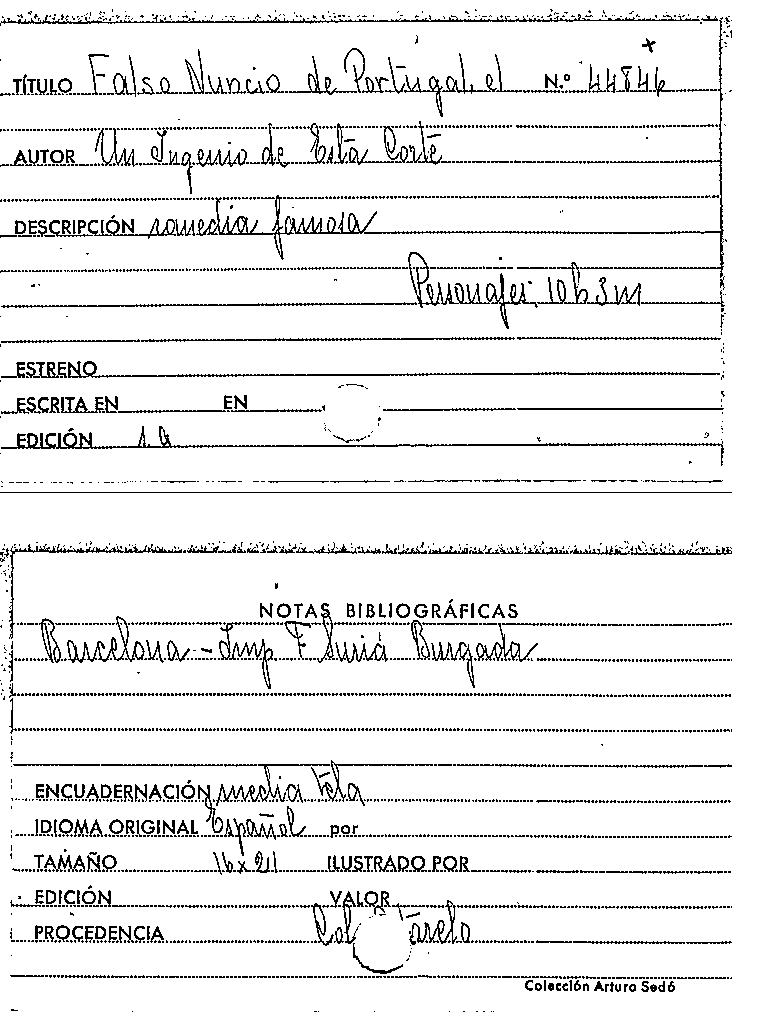 TÍTULO Falso Nuncio de Portugal, el N.º 44846
AUTOR Un Ingenio de Esta Corte
DESCRIPCIÓN comedia famosa
Personajes: 10 h 3 m
ESTRENO
ESCRITA EN EN
EDICIÓN 1 a
NOTAS BIBLIOGRÁFICAS
Barcelona - Imp F Suriá Burgada
ENCUADERNACIÓN media tela
IDIOMA ORIGINAL Español por
TAMAÑO 16 x 21 ILUSTRADO POR
EDICIÓN VALOR
PROCEDENCIA Col
Colección Arturo Sedó